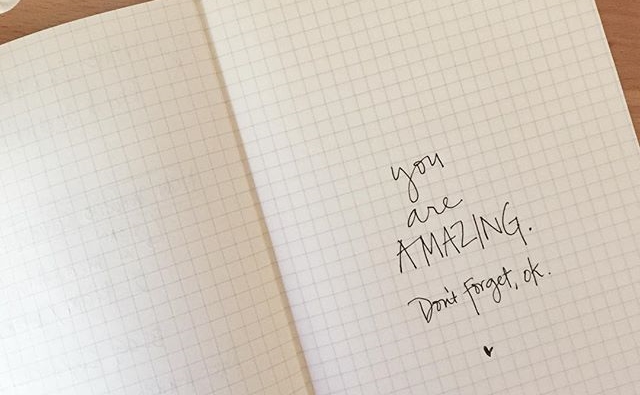 you
are
AMAZING.
Don't forget, ok.